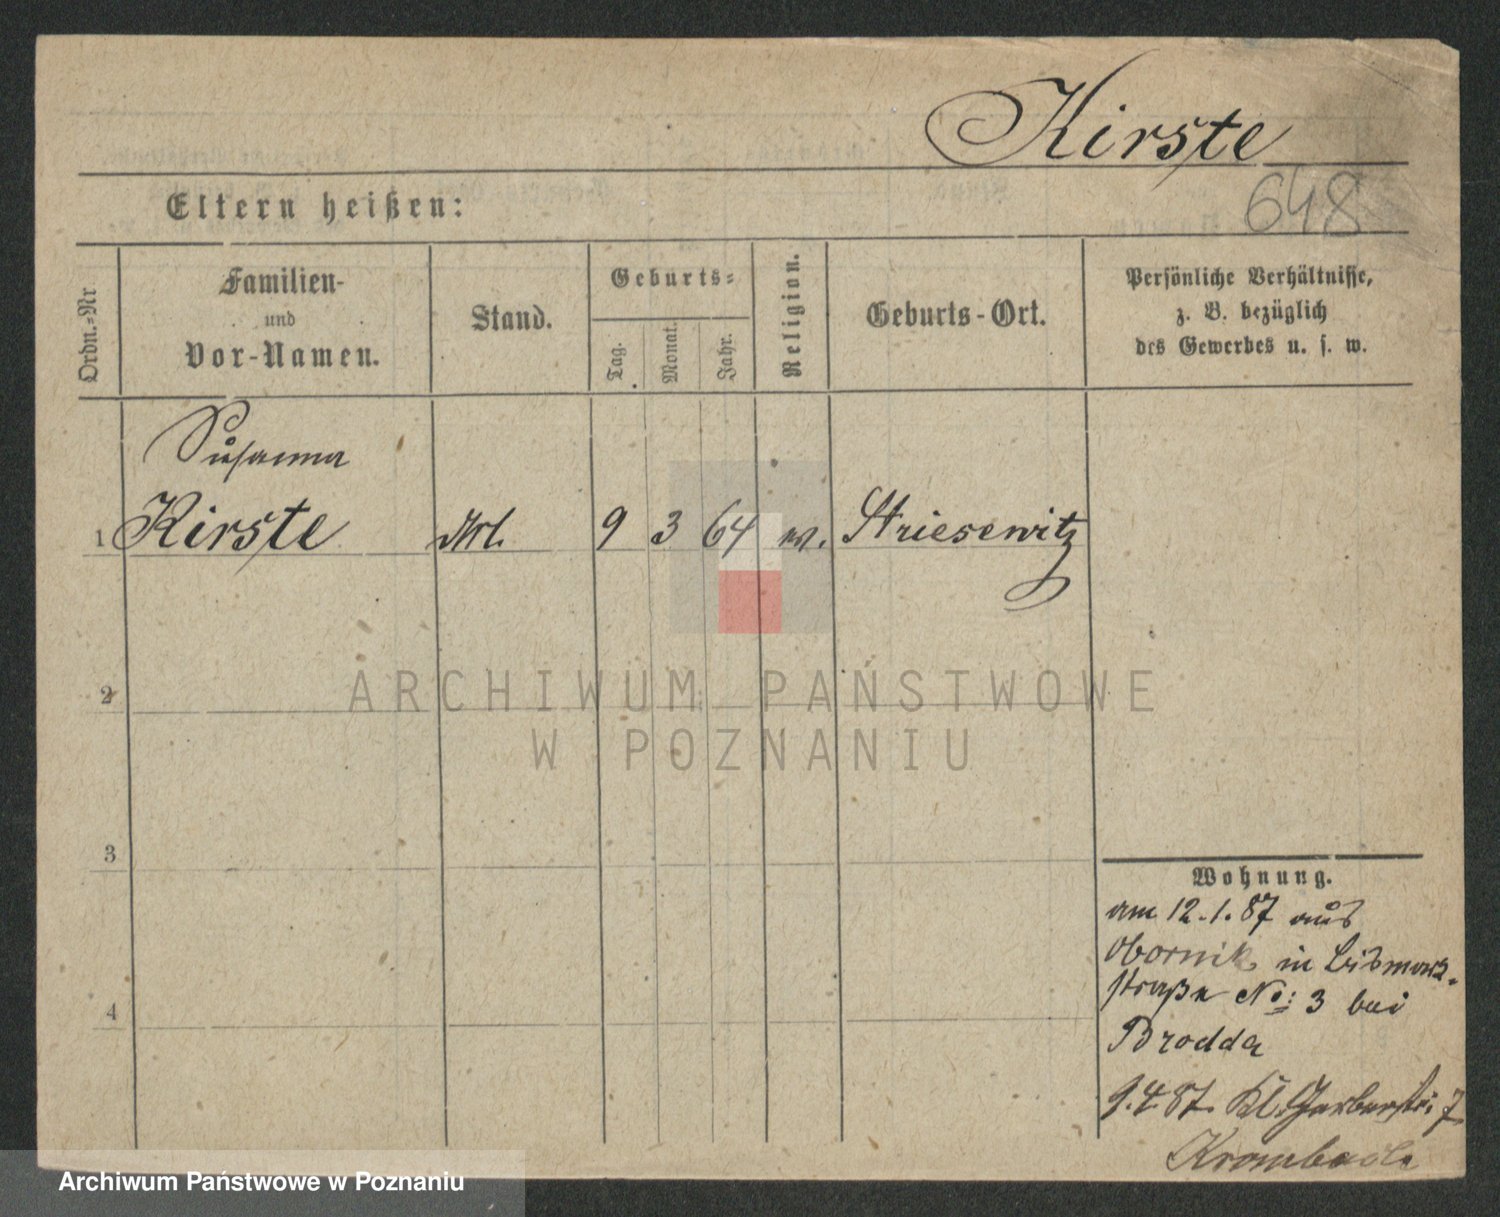 Kirste
648
Eltern heißen:
Ordn.-Nr
Familien-
und
Vor-Namen.
Stand.
Geburts-
Tag.
Monat.
Jahr.
Religion.
Geburts-Ort.
Persönliche Verhältnisse,
z. B. bezüglich
des Gewerbes u. s. w.
Susanna
1 Kirste 9 3 64 Striesewitz
2
ARCHIWUM PAŃSTWOWE
W POZNANIU
3
Wohnung.
am 12.1.87 aus
Obornik in Bismark-
straße No: 3 bei
4
Brodda
9.4.87. Kl. Gerberstr. 7
Krombach
Archiwum Państwowe w Poznaniu